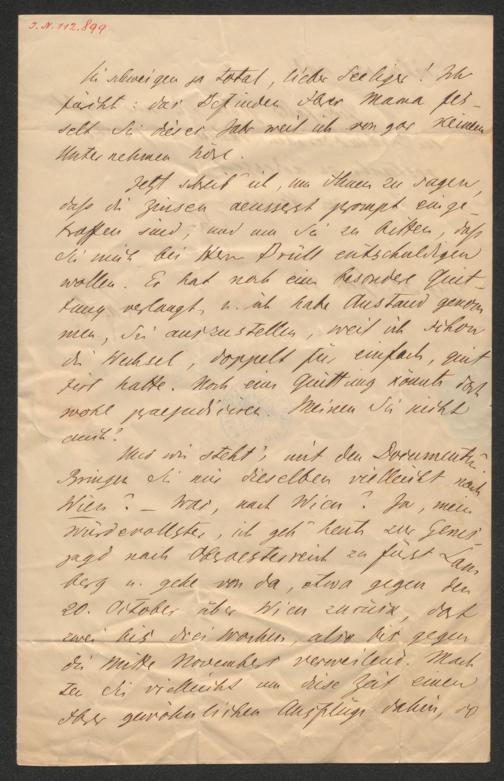 I.N. 112.899
Sie schweigen ja total, lieber Seeliger! Ich
fürchte: das Befinden Ihrer Mama fes-
selt Sie dieses Jahr weil ich von gar keinem
Unternehmen höre.
Jetzt schreib' ich, um Ihnen zu sagen,
daß die Zinsen aeusserst prompt einge-
troffen sind, und um Sie zu bitten, daß
Sie mich bei Herrn Brüll entschuldigen
wollen. Er hat noch eine besondere Quit-
tung verlangt u. ich habe Anstand genom
men, sie auszustellen, weil ich schon
die Wechsel, doppelt für einfach, quit
tirt hatte. Noch eine Quittung könnte doch
wohl praejudiciren. Meinen Sie nicht
auch?
Und wie steht's mit den Documenten?
Bringen Sie mir dieselben vielleicht nach
Wien? – Was, nach Wien? Ja, mein
Würdevollster, ich geh' heute zur Gems
jagd nach Oberoesterreich zu Fürst Lam
berg u. gehe von da, etwa gegen den
20. October über Wien zurück, dort
zwei bis drei Wochen, also bis gegen
die Mitte November verweilend. Mach
ten Sie vielleicht um diese Zeit einen
Ihrer gewöhnlichen Ausflüge dahin, so